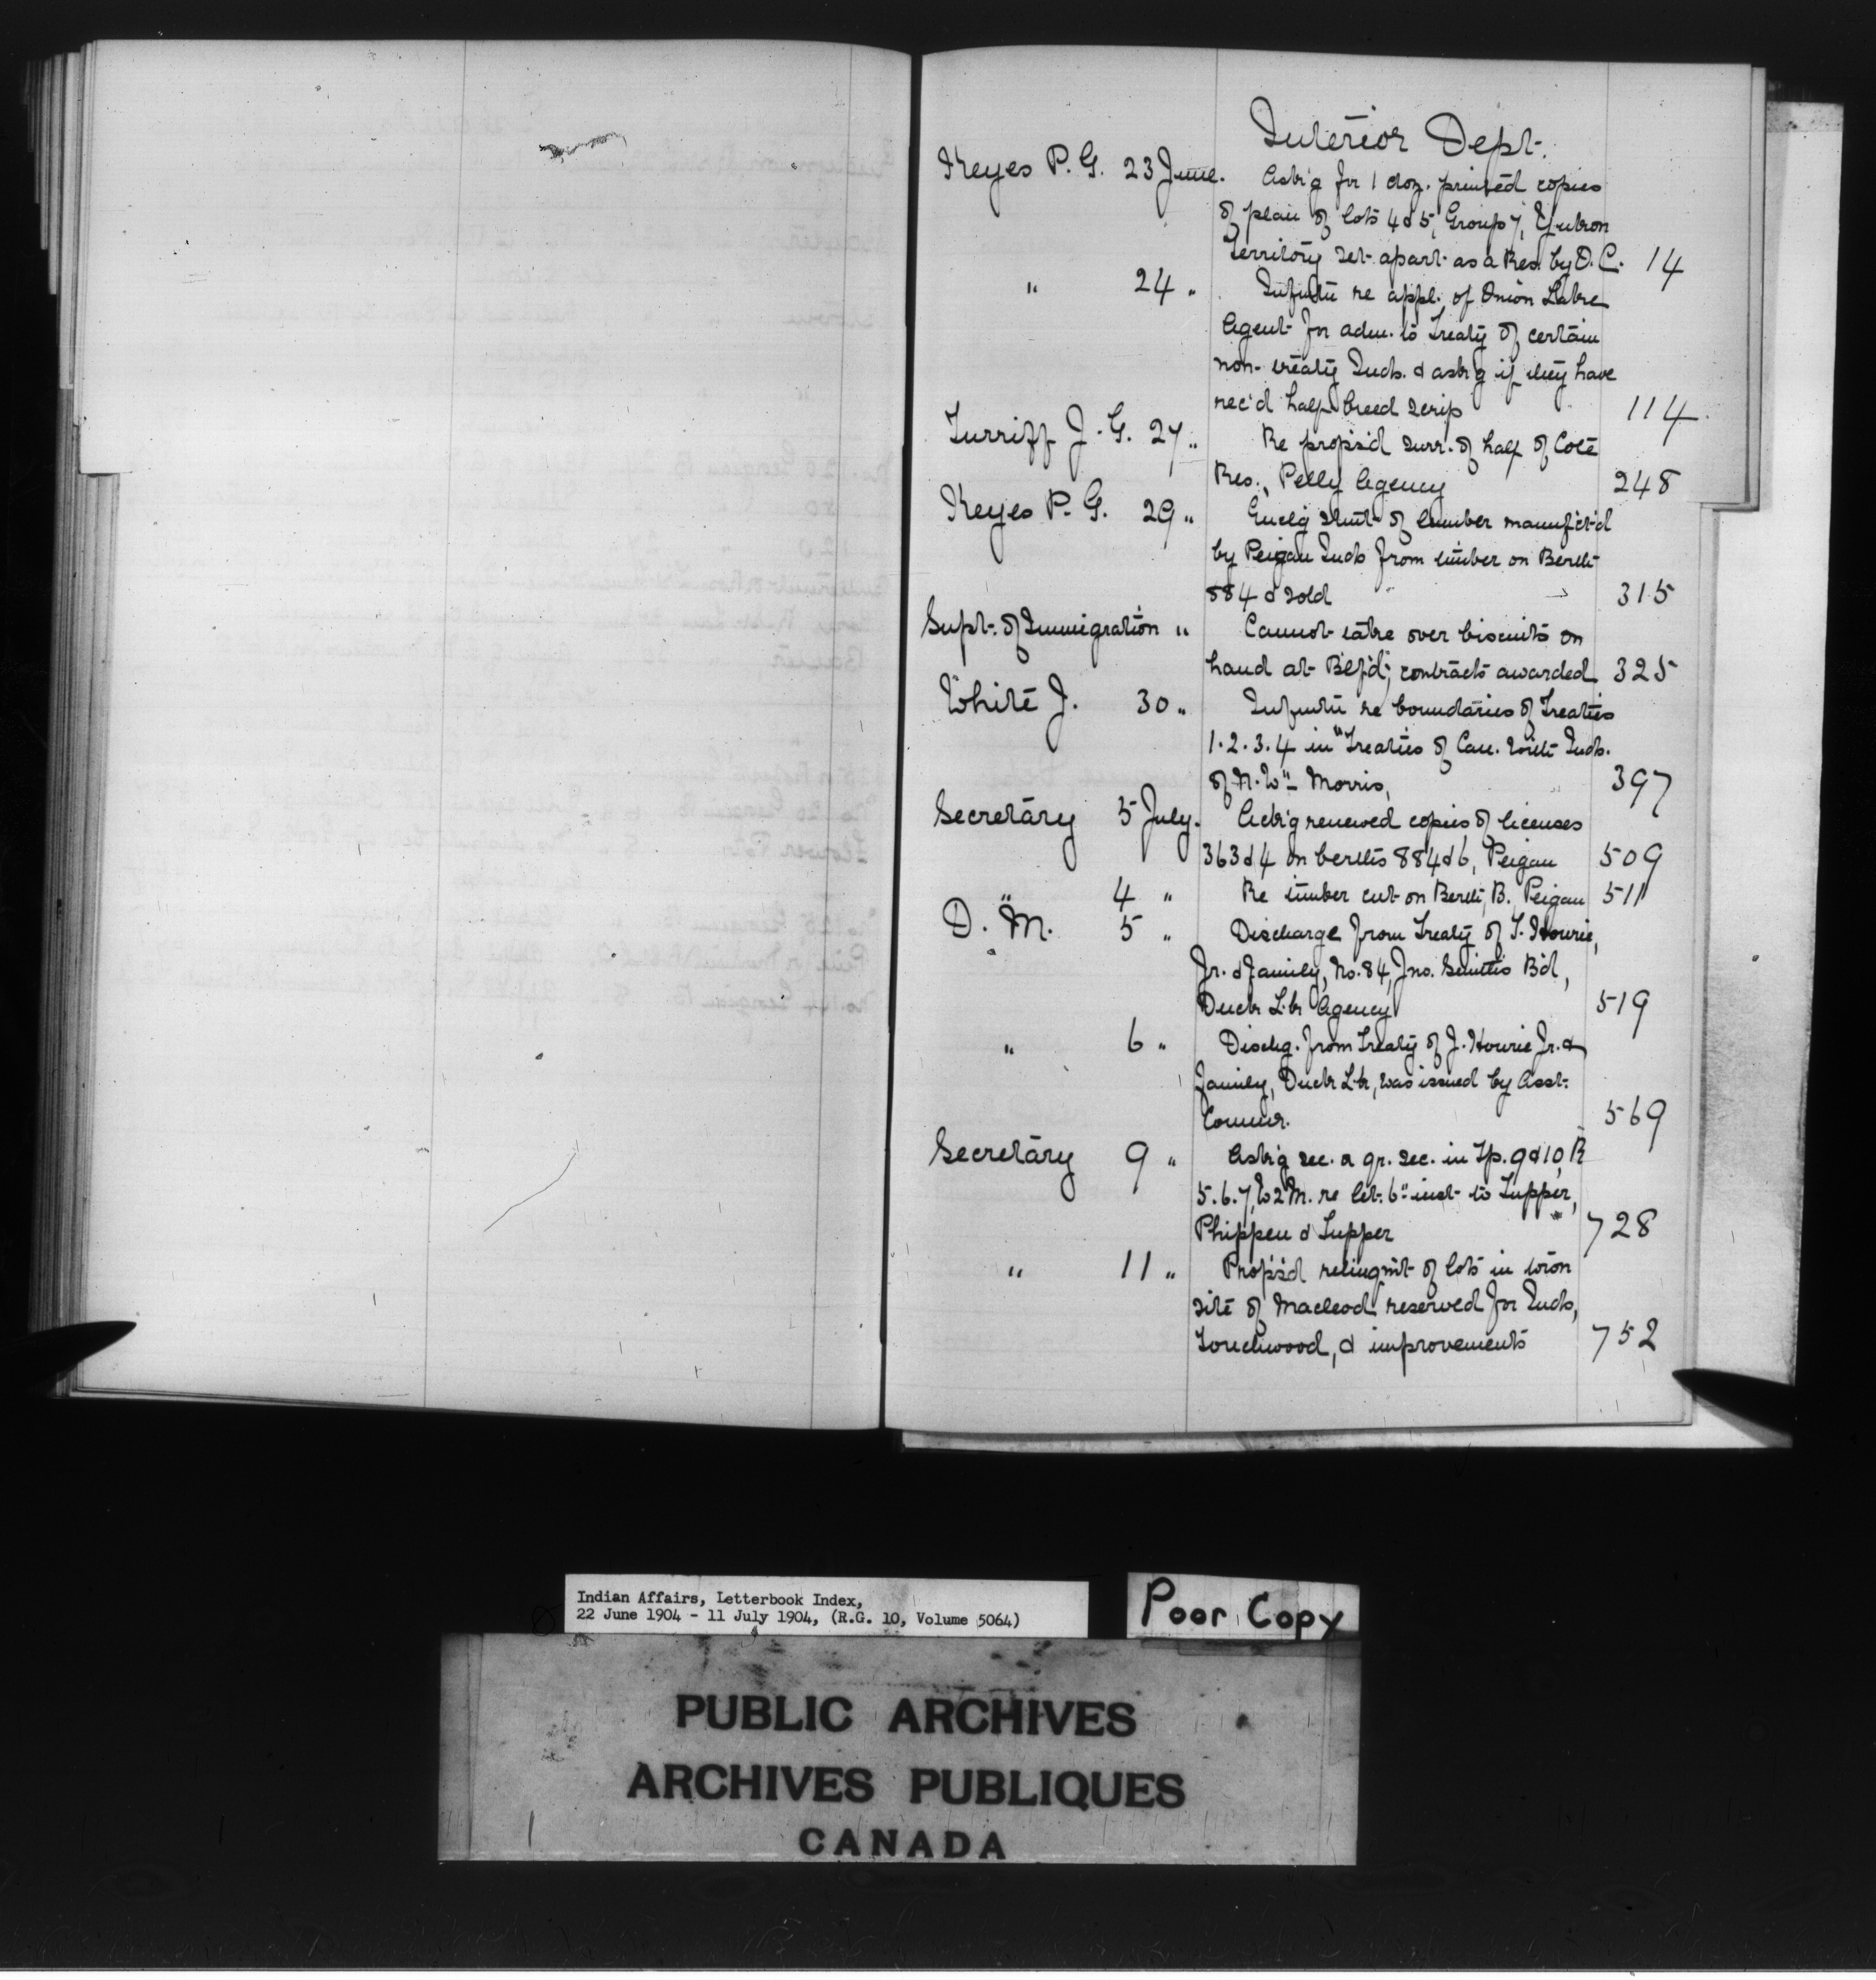 Interior Dept.
Keyes P. G. 23 June. Ask'g for 1 doz. printed copies
of plan of lots 4 & 5, Group 7, Yukon
Territory set apart as a Res. by O. C. 14
" 24 " Infmtn re appl. of Onion Lake
Agent for adm. to Treaty of certain
non-treaty Inds. & ask'g if they have
rec'd half breed scrip 114
Turriff J. G. 27 " Re props'd surr. of half of Cote
Res., Pelly Agency 248
Keyes P. G. 29 " Encl'g stmt of lumber manufct'd
by Peigan Inds from timber on Berth
884 & sold 315
Supt. of Immigration " Cannot take over biscuits on
hand at B'lf'd; contracts awarded 325
White J. 30 " Infmtn re boundaries of Treaties
1.2.3.4 in "Treaties of Can. with Inds.
of N.W" - Morris, 397
Secretary 5 July. Ack'g renewed copies of licenses
363 & 4 on berths 884 & 6, Peigan 509
" 4 " Re timber cut on Berth, B., Peigan 511
D. M. 5 " Discharge from Treaty of T. Hourie,
Jr. & family, No. 84, Jno. Smith's B'd,
Duck L'k Agency 519
" 6 " Dischg. from Treaty of J. Hourie Jr. &
family, Duck L'k, was issued by Asst.
Commr. 569
Secretary 9 " Ask'g sec. a qr. sec. in Tp. 9 & 10, R
5.6.7, W 2 M. re let. 6" inst to Tupper,
Phippen & Tupper 728
" 11 " Props'd relinqmt of lots in town
site of Macleod reserved for Inds,
Touchwood, & improvements 752
Indian Affairs, Letterbook Index,
22 June 1904 - 11 July 1904, (R.G. 10, Volume 5064)
Poor Copy
PUBLIC ARCHIVES
ARCHIVES PUBLIQUES
CANADA